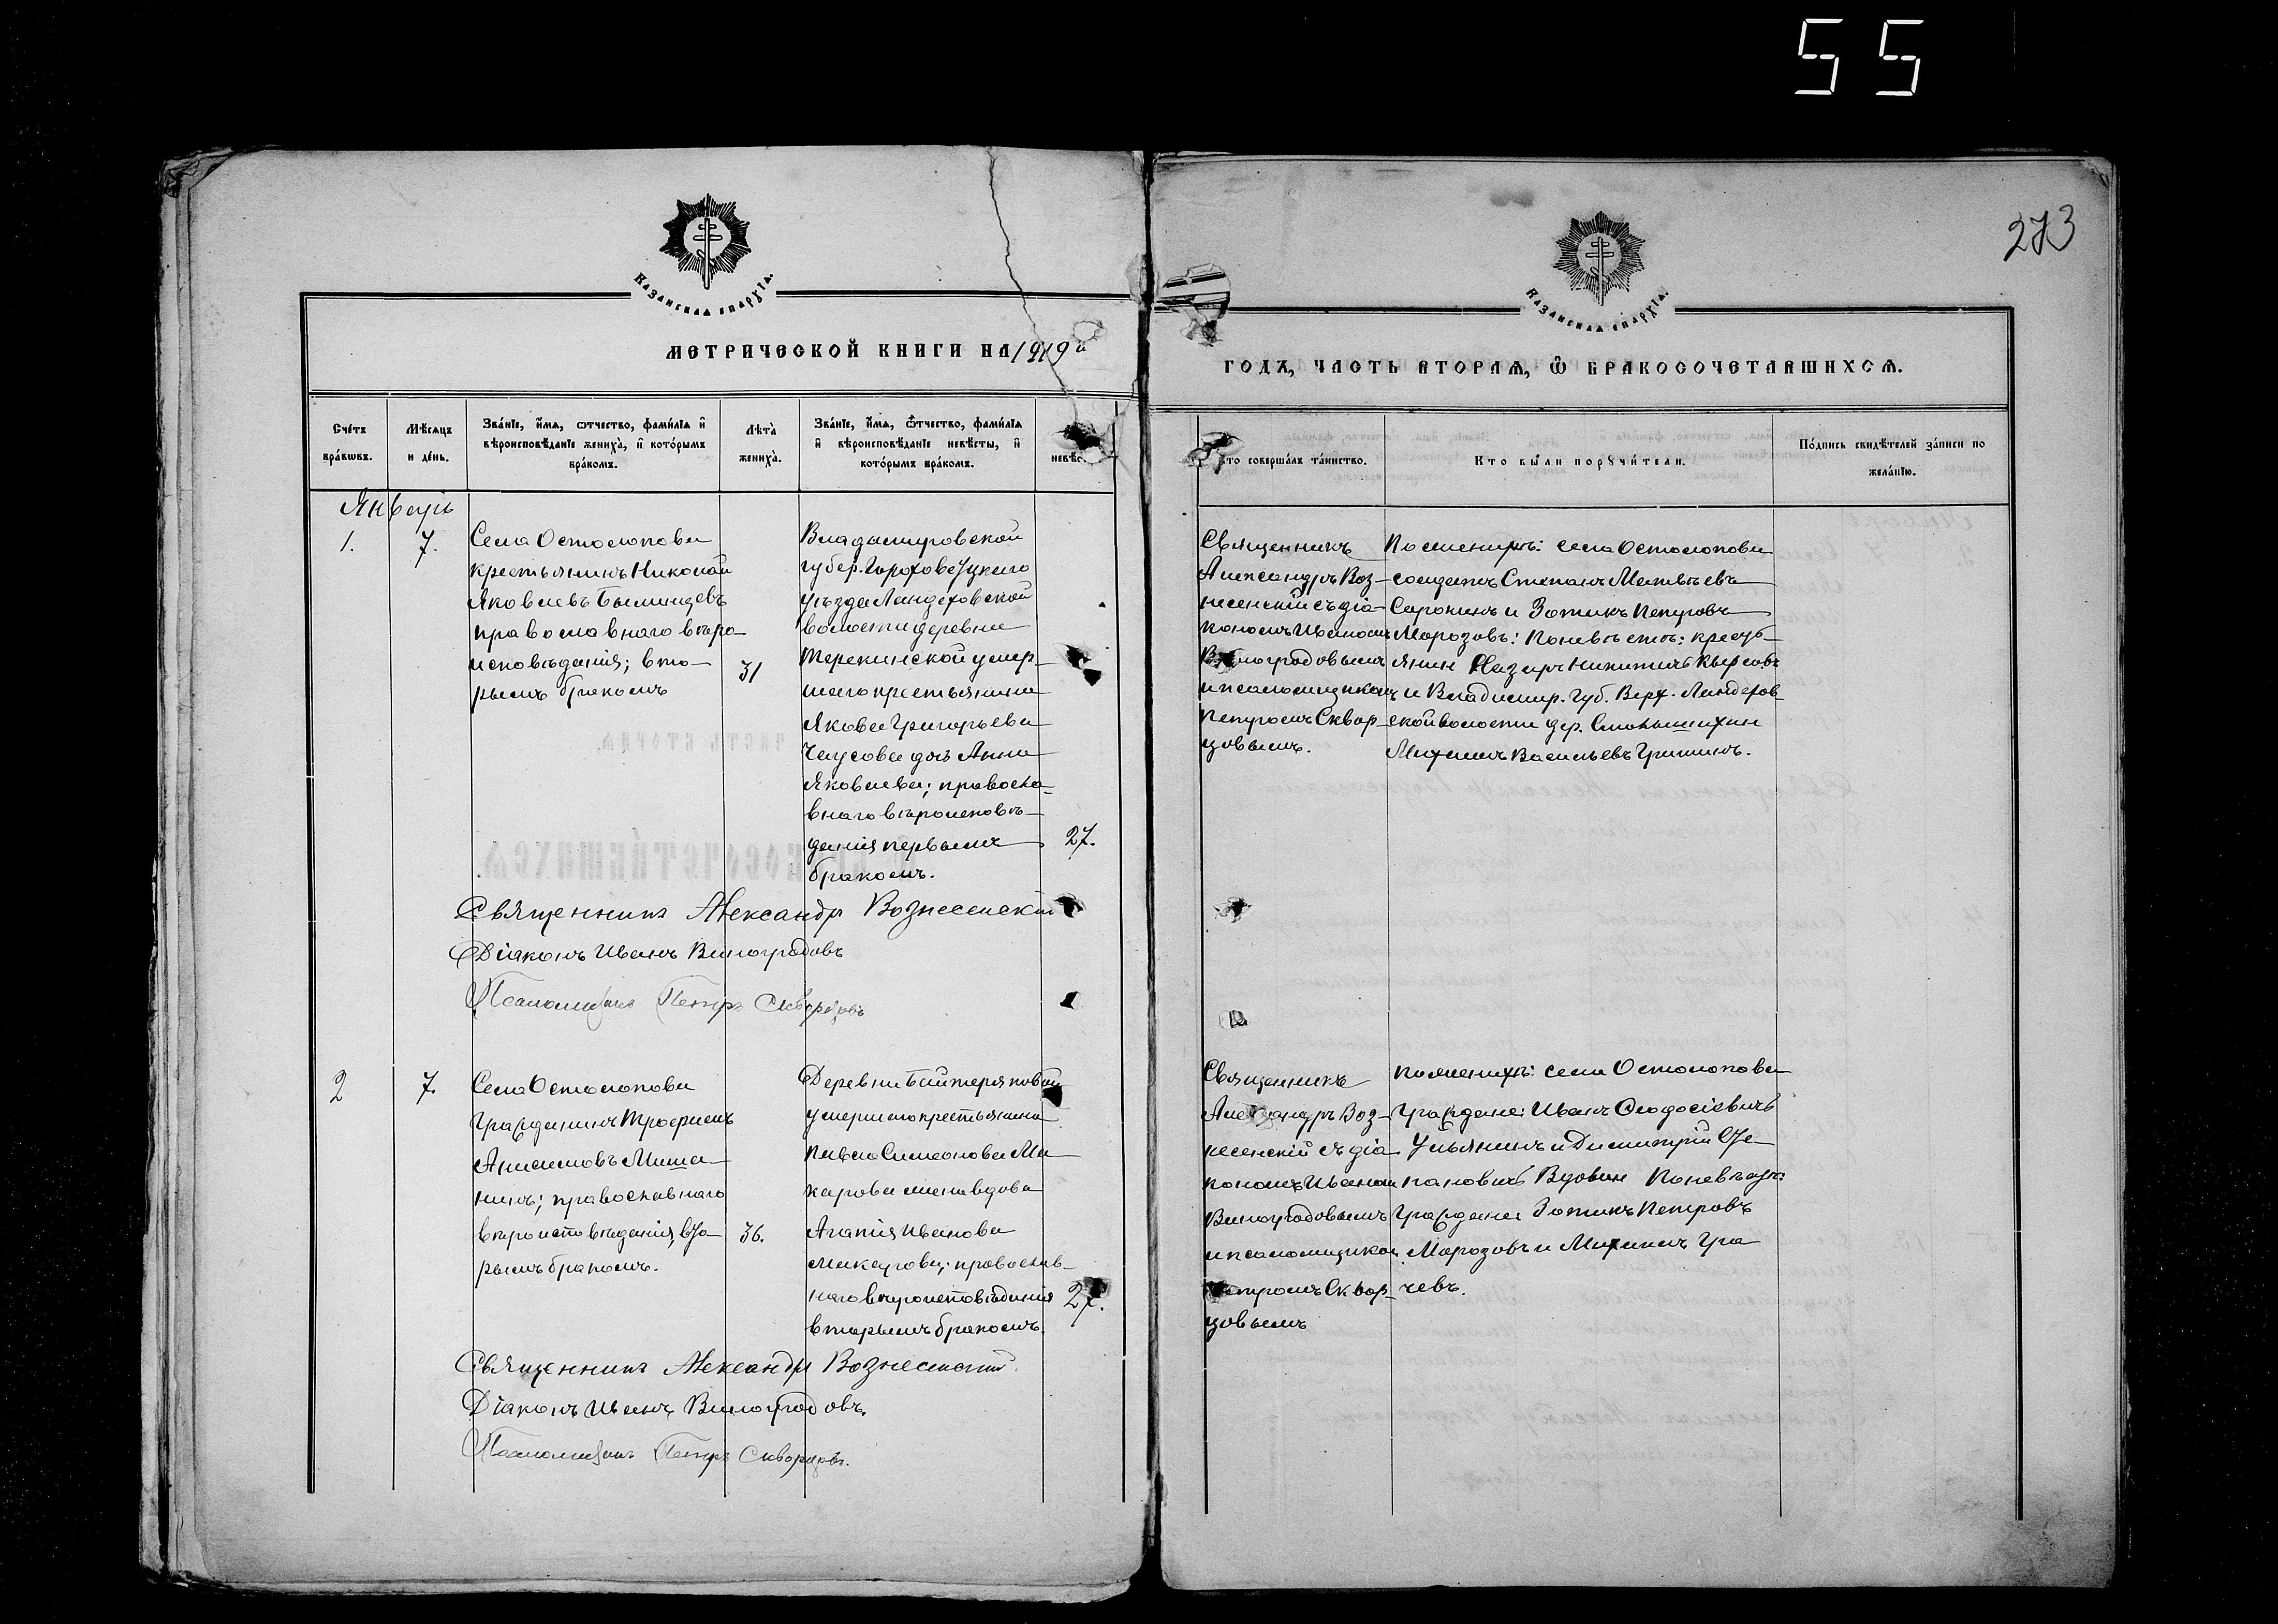 55
273
Казанская епархїа.
Казанская епархїа.
МЕТРИЧЕСКОЙ КНИГИ НА 1919й
ГОДЪ, ЧАСТЬ ВТОРАѦ, Ѿ БРАКОСОЧЕТАВШИХСѦ.
Счетъ браковъ.
Мѣсяцъ и день.
Званїе, имя, отчество, фамилїя и вѣроисповѣданїе жениха, и которымъ бракомъ.
Лѣта жениха.
Званїе, имя, отчество, фамилїя и вѣроисповѣданїе невѣсты, и которымъ бракомъ.
невѣс
то совершалъ таинство.
Кто были поручители.
Подпись свидѣтелей записи по желанїю.
Январь
1.
7.
Села Остолопова
крестьянинъ Николай
Яковлевъ
православнаго вѣро-
исповѣданія; вто-
рымъ бракомъ
31
Владимировской
губер. Гороховецкаго
уѣзда Ландеховской
волости деревни
умер-
шаго крестьянина
Якова Григорьева
Чаусова дочь Анна
Яковлева; правосла-
внаго вѣроисповѣ-
данія первымъ
бракомъ.
27.
Священникъ
Александръ Воз-
несенскій съ діа-
кономъ Иваномъ
Виноградовымъ
и псаломщикомъ
Петромъ Сквор-
цовымъ.
По женихѣ: села Остолопова
солдатъ Степанъ Матвѣевъ
Сорокинъ и Зотикъ Петровъ
Морозовъ: По невѣстѣ: кресть-
янин Назаръ Никитичъ
и Владимир. Губ. Верх. Ландехов-
ской волости дер.
Михаилъ Васильевъ Гришинъ.
Священникъ Александръ Вознесенскій
Діаконъ Иванъ Виноградовъ
Псаломщикъ Петръ Скворцовъ
2
7.
Села Остолопова
Гражданинъ Трофимъ
Анисимовъ Миша-
нинъ; православнаго
вѣроисповѣданія, вто-
рымъ бракомъ.
36.
Деревни
умершаго крестьянина
Павла Симеонова Ма-
карова жена вдова
Агапія Иванова
Макарова; православ-
наго вѣроисповѣданія
вторымъ бракомъ.
27.
Священникъ
Александръ Воз-
несенскій съ діа-
кономъ Иваномъ
Виноградовымъ
и псаломщикомъ
Петромъ Сквор-
цовымъ
По женихѣ: села Остолопова
Граждане: Иванъ Феодосіевичъ
Ульянинъ и Димитрій Сте-
пановичъ Вдовин По невѣстѣ:
Граждане: Зотикъ Петровъ
Морозовъ и Михаилъ Гра
чевъ.
Священникъ Александръ Вознесенскій.
Діаконъ Иванъ Виноградовъ.
Псаломщикъ Петръ Скворцовъ.